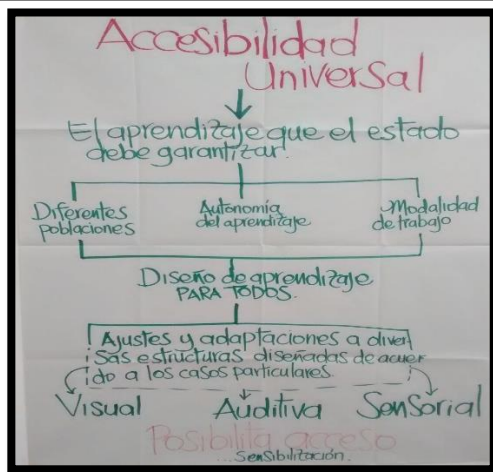 Accesibilidad
Universal
El aprendizaje que el estado
debe garantizar.
Diferentes
poblaciones
Autonomía
del aprendizaje
Modalidad
de trabajo
Diseño de aprendizaje
PARA TODOS.
Ajustes y adaptaciones a diver
sas estructuras diseñadas de acuer
do a los casos particulares
Visual Auditiva Sensorial
Posibilita acceso
...Sensibilización.